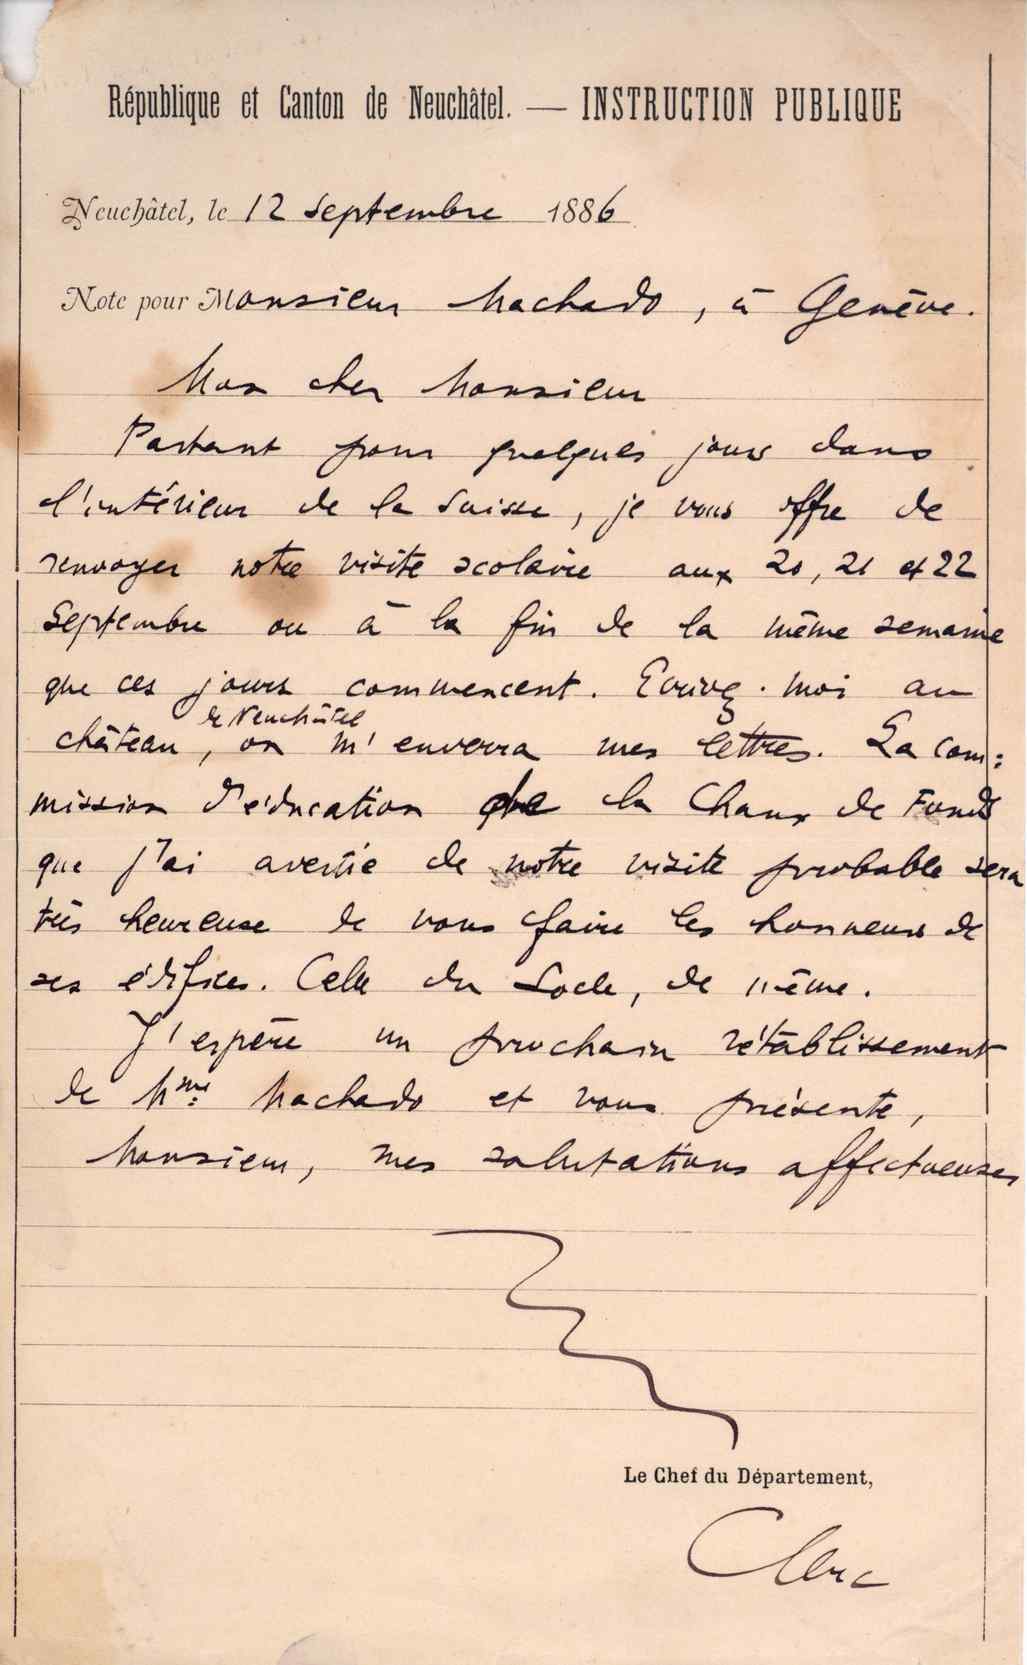 République et Canton de Neuchâtel. — INSTRUCTION PUBLIQUE
Neuchâtel, le 12 Septembre 1886
Note pour Monsieur Machado, à Genève.
Mon cher Monsieur
Partant pour quelques jours dans
l'intérieur de la Suisse, je vous offre de
renvoyer notre visite scolaire aux 20, 21 et 22
Septembre ou à la fin de la même semaine
que ces jours commencent. Ecrivez-moi au
de Neuchâtel
château, on m'enverra mes lettres. La com:
mission d'éducation de la Chaux de Fonds
que j'ai avertie de notre visite probable sera
très heureuse de vous faire les honneurs de
ses édifices. Celle du Locle, de même.
J'espère un prochain rétablissement
de Mme Machado et vous présente,
Monsieur, mes salutations affectueuses
Le Chef du Département,
Clerc